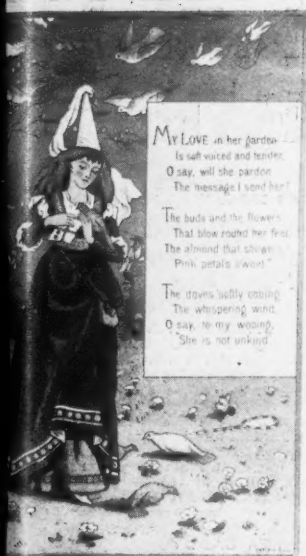 MY LOVE in her garden
Is soft voiced and tender,
O say, will she pardon
The message I send her?
The buds and the flowers
That blow round her feet
The almond that showers
Pink petals sweet
The doves softly cooing
The whispering wind,
O say, to my wooing,
"She is not unkind